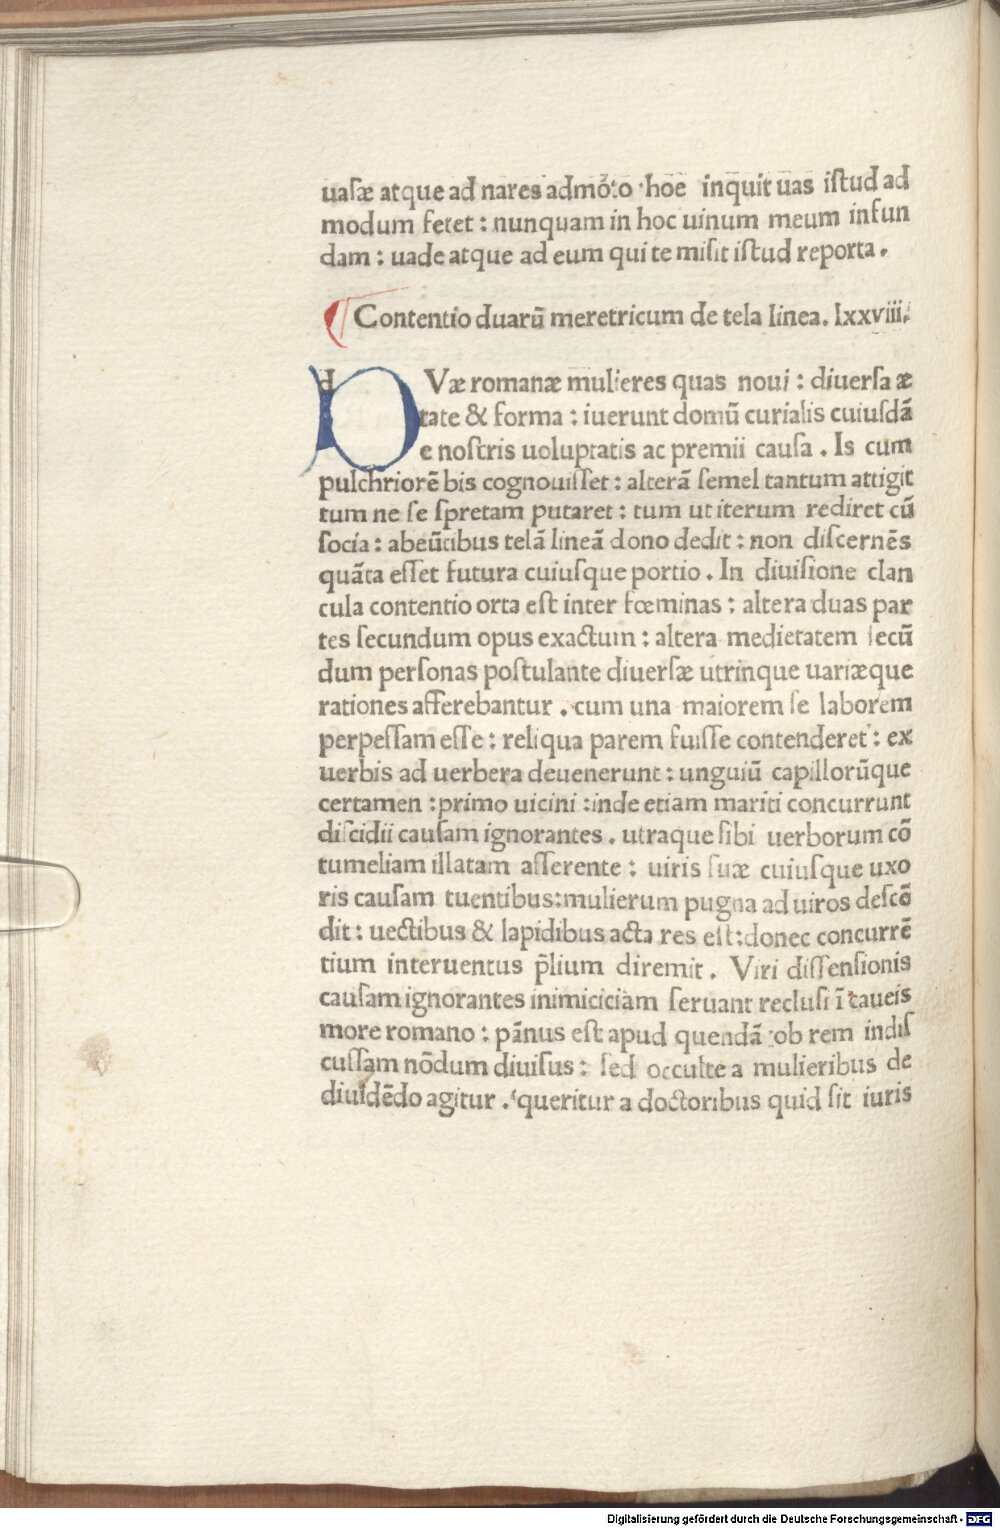 uaſæ atque ad nares admõto hoe inquit uas iſtud ad
modum fetet : nunquam in hoc uinum meum infun
dam : uade atque ad eum qui te miſit iſtud reporta .
Contentio duarũ meretricum de tela linea. lxxviii.
d Væ romanæ mulieres quas noui : diuerſa æ
tate & forma : iuerunt domũ curialis cuiuſdã
e noſtris uoluptatis ac premii cauſa . Is cum
pulchriorẽ bis cognouiſſet : alterã ſemel tantum attigit
tum ne ſe ſpretam putaret : tum ut iterum rediret cũ
ſocia : abeũtibus telã lineã dono dedit : non diſcernẽs
quãta eſſet futura cuiuſque portio . In diuiſione clan
cula contentio orta eſt inter fœminas : altera duas par
tes ſecundum opus exactum : altera medietatem ſecũ
dum perſonas poſtulante diuerſæ utrinque uariæque
rationes afferebantur . cum una maiorem ſe laborem
perpeſſam eſſe : reliqua parem fuiſſe contenderet : ex
uerbis ad uerbera deuenerunt : unguiũ capillorũque
certamen : primo uicini : inde etiam mariti concurrunt
diſcidii cauſam ignorantes . utraque ſibi uerborum cõ
tumeliam illatam aſſerente : uiris ſuæ cuiuſque uxo
ris cauſam tuentibus : mulierum pugna ad uiros deſcẽ
dit : uectibus & lapidibus acta res eſt : donec concurrẽ
tium interuentus p̃lium diremit . Viri diſſenſionis
cauſam ignorantes inimiciciam ſeruant recluſi ĩ caueis
more romano : pãnus eſt apud quendã ob rem indiſ
cuſſam nõdum diuiſus : ſed occulte a mulieribus de
diuidẽdo agitur . queritur a doctoribus quid ſit iuris
Digitalisierung gefördert durch die Deutsche Forschungsgemeinschaft - DFG